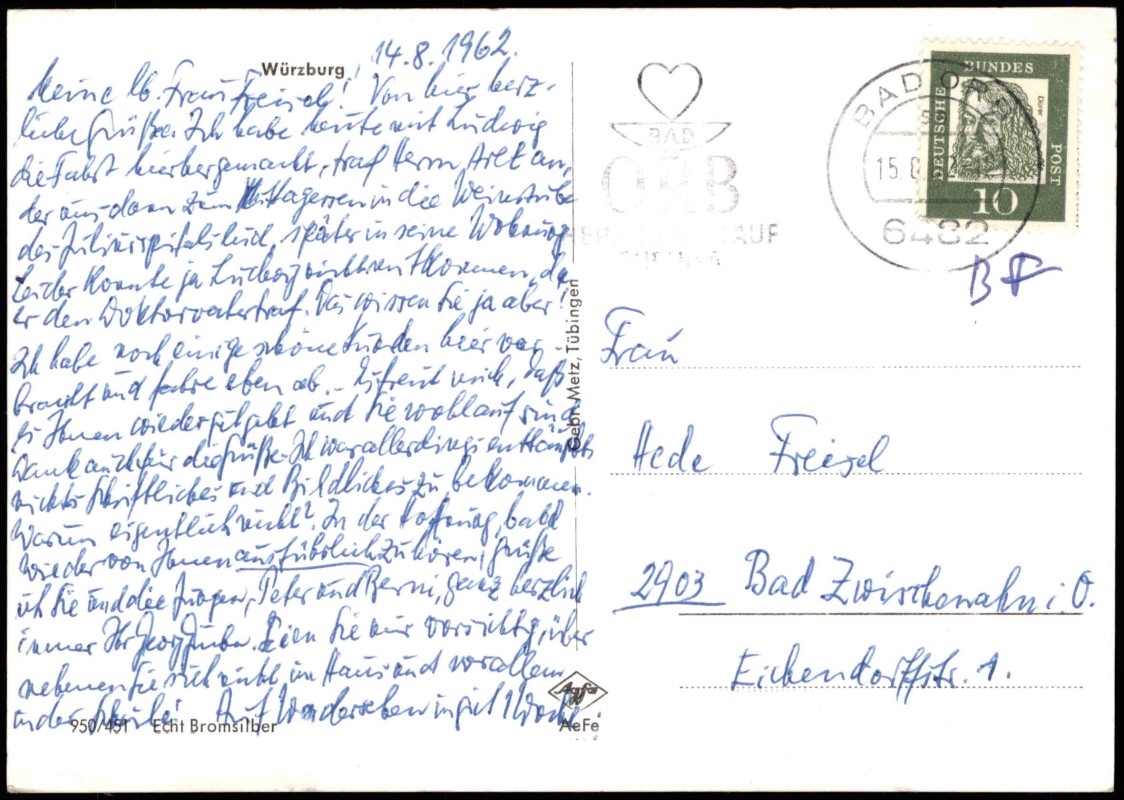 Würzburg, 14.8.1962.
Meine lb. Frau Freisel! Von hier herz-
liche Grüße. Ich habe heute mit Ludwig
die Fahrt hierher gemacht, traf Herrn Arlt an,
der uns dann zum Mittagessen in die Weinstube
des Juliusspitals lud, später in seine Wohnung.
Leider konnte ja Ludwig nicht mitkommen, da
er den Doktorvater traf. Das wissen Sie ja aber!
Ich habe noch einige schöne Stunden hier ver-
bracht und fahre eben ab. – Es freut mich, daß
es Ihnen wieder gut geht und Sie wohlauf sind.
Dank auch für die Grüße. Ich war allerdings enttäuscht,
nichts Schriftliches und Bildliches zu bekommen.
Warum eigentlich nicht? In der Hoffnung, bald
wieder von Ihnen ausführlich zu hören, grüße
ich Sie und die Jungen, Peter und Berni, ganz herzlich
immer Ihr Seien Sie nur vorsichtig, über
nehmen Sie sich nicht im Haus und vor allem
in der Schule! Auf Wiedersehen in gut 1 Woche.
950/451 Echt Bromsilber
Gebr. Metz, Tübingen
Agfa
AeFe
BAD
ORB
BAD ORB
15.8.
6482
DEUTSCHE
BUNDES
POST
Dürer
10
Frau
Hede Freisel
2903 Bad Zwischenahn i. O.
Eichendorffstr. 1.